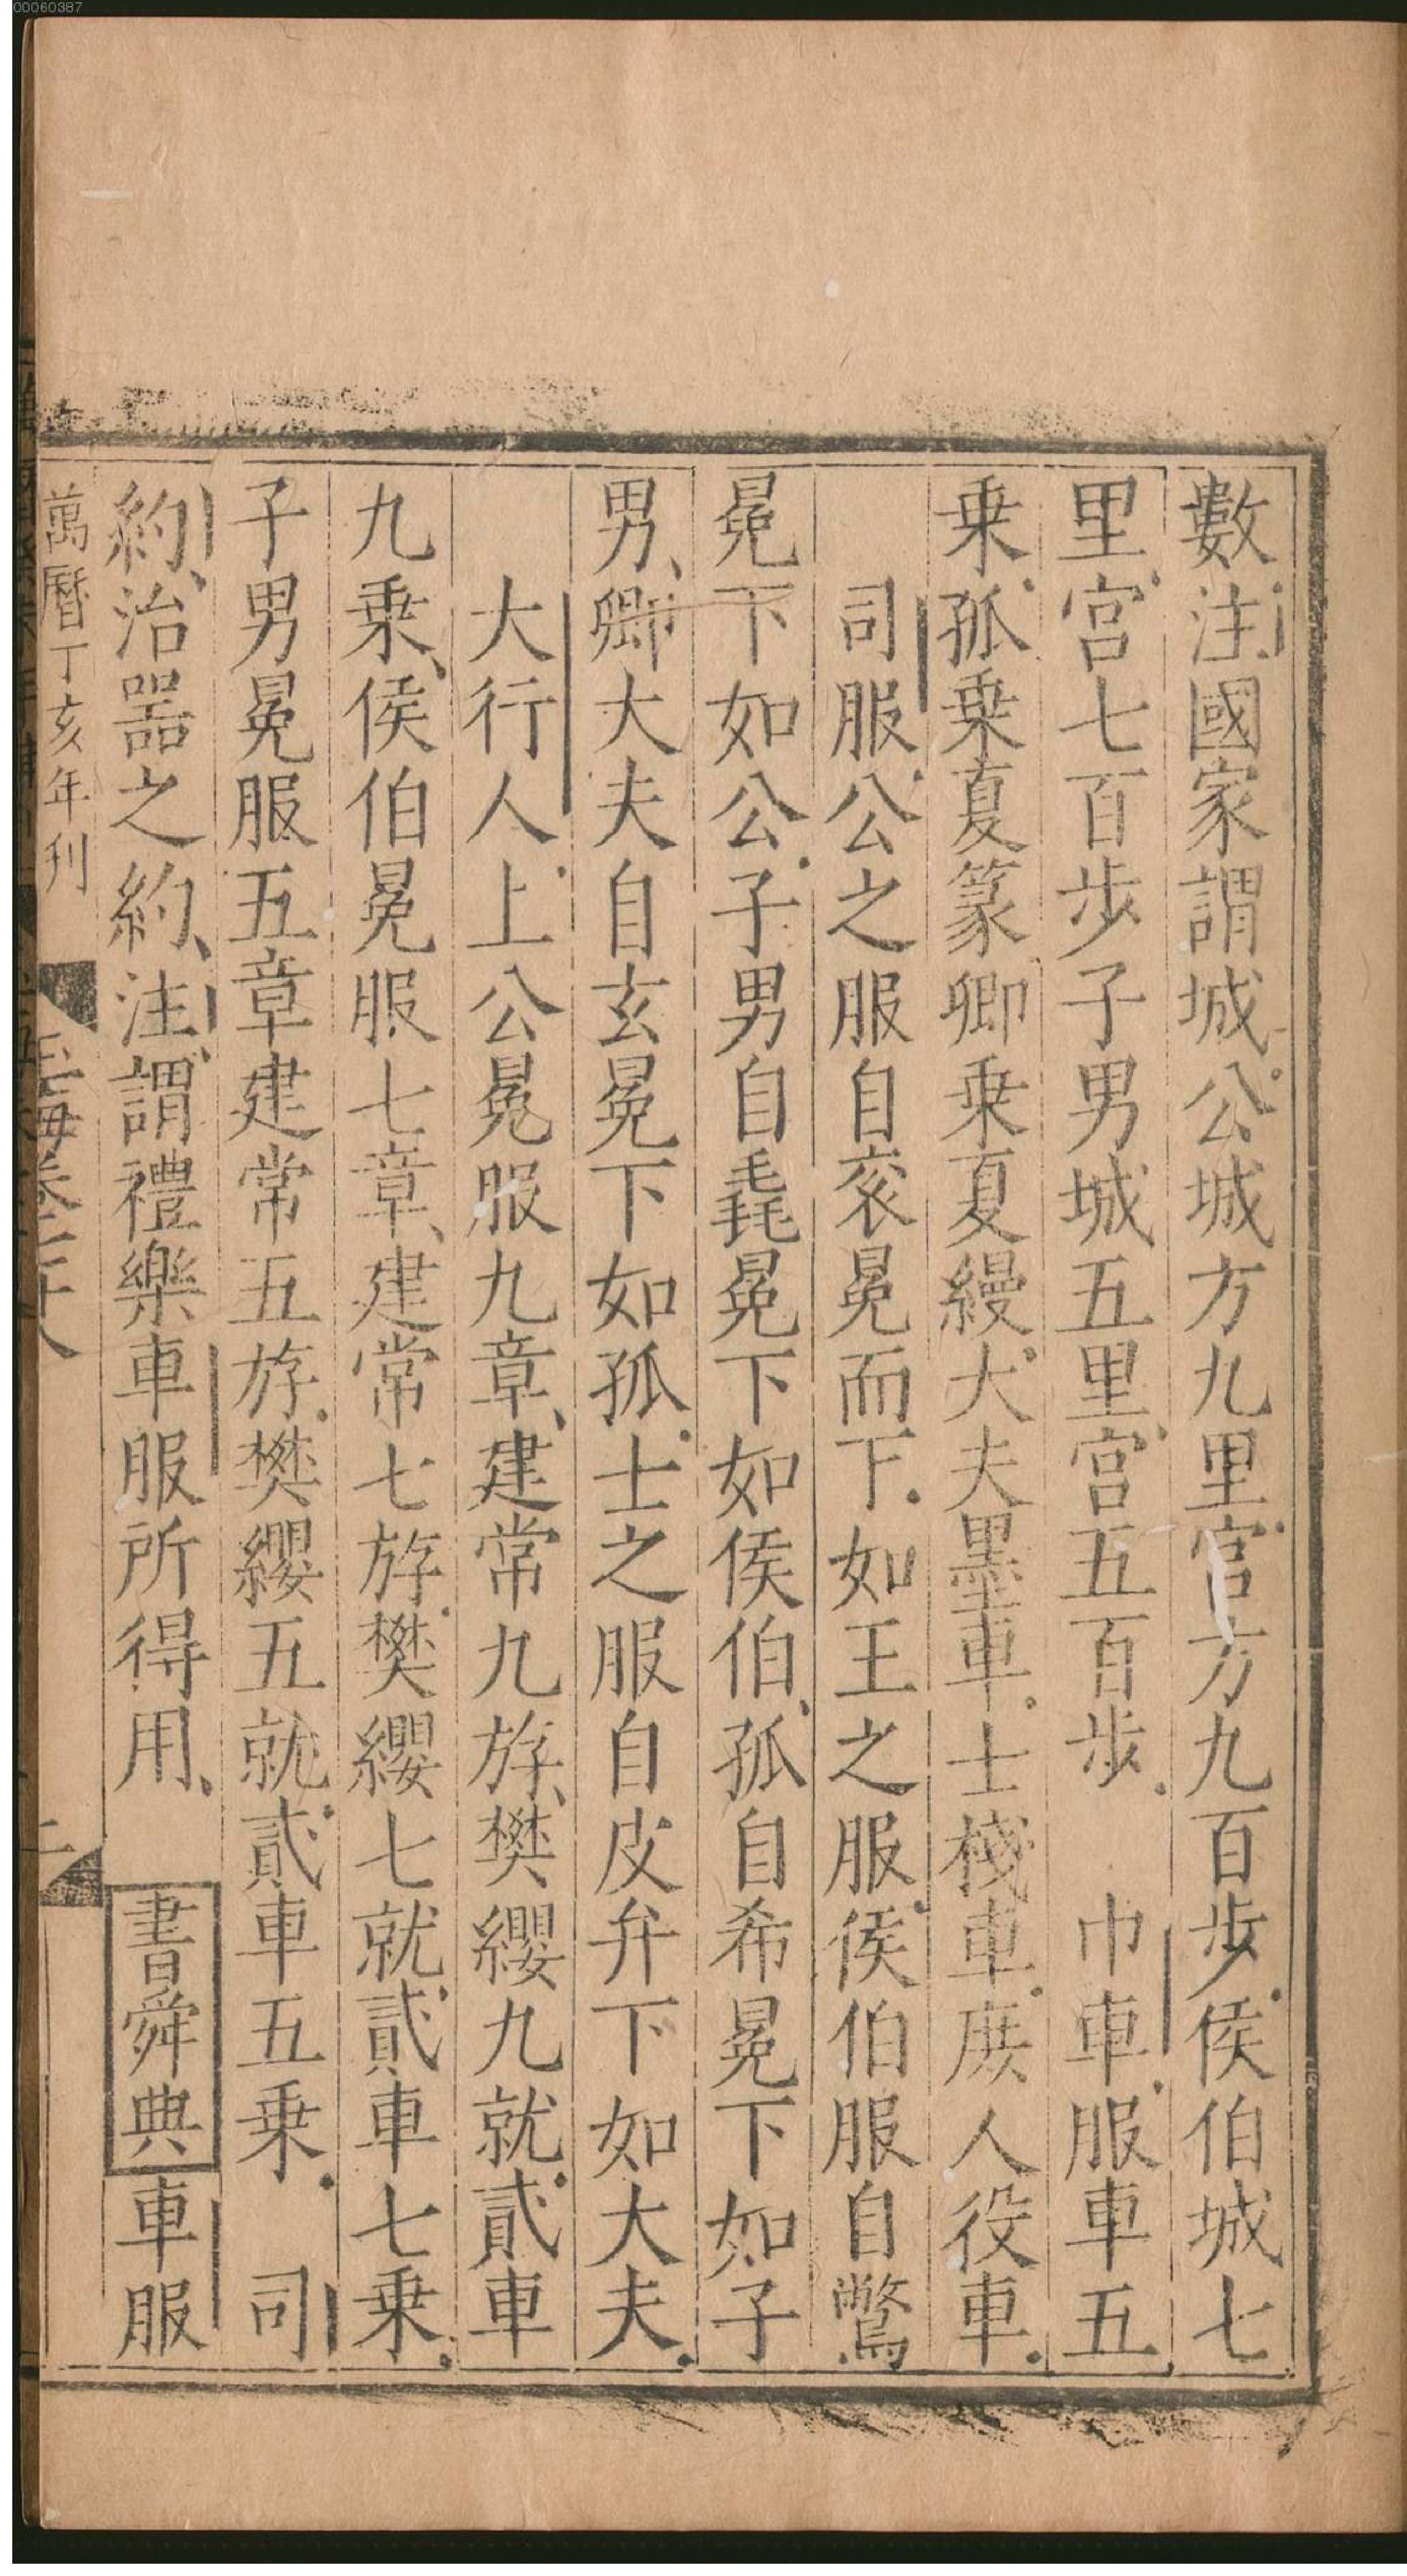 00060387
數注國家謂城公城方九里宫方九百步侯伯城七
里宫七百步子男城五里宫五百步　巾車服車五
乗孤乗夏篆卿乗夏縵大夫墨車士棧車庶人役車
司服公之服自衮冕而下如王之服侯伯服自鷩
冕下如公子男自毳冕下如侯伯孤自希冕下如子
男卿大夫自玄冕下如孤士之服自皮弁下如大夫
大行人上公冕服九章建常九斿樊纓九就貳車
九乗侯伯冕服七章建常七斿樊纓七就貳車七乗
子男冕服五章建常五斿樊纓五就貳車五乗　司
約治器之約注謂禮樂車服所得用　書舜典車服
萬曆丁亥年刊　玉海卷二十八　二